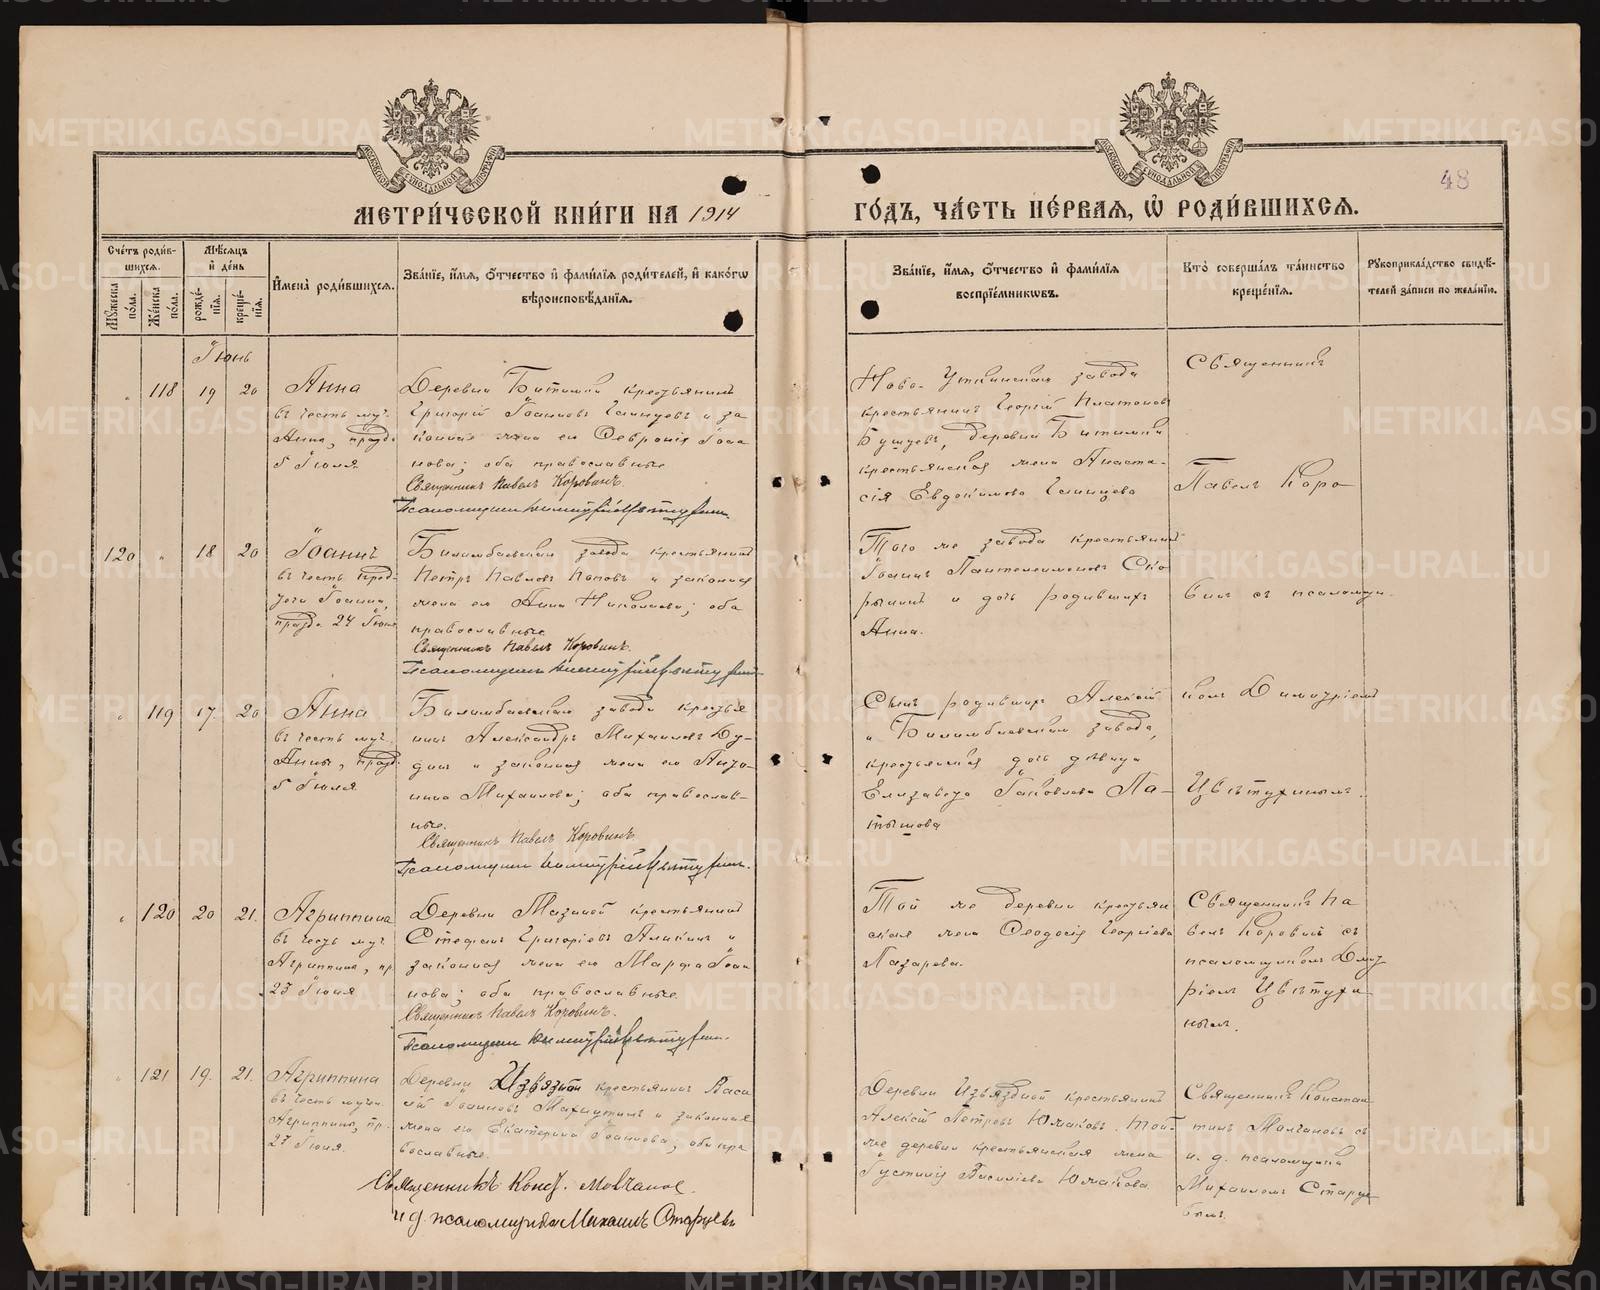 МЕТРИЧЕСКОЙ КНИГИ НА 1914 ГОДЪ, ЧАСТЬ ПЕРВАЯ, Ѡ РОДИВШИХСЯ.
48
Счетъ родив-
шихся.
Мѣсяцъ
и день
Мужеска
пола.
Женска
пола.
рожде-
нія.
креще-
нія.
Имена родившихся.
Званіе, имя, отчество и фамилія родителей, и какогѡ
вѣроисповѣданія.
Званіе, имя, отчество и фамилія
воспріемникѡвъ.
Кто совершалъ таинство
крещенія.
Рукоприкладство свидѣ-
телей записи по желанію.
Іюнь
118 19 20
Анна
въ честь муч.
Анны, празд.
5 Іюля
Деревни Битимки крестьянинъ
Григорій Іоанновъ Галицевъ и за
конная жена его Февронія Іоан
нова; оба православные
Священникъ Павелъ Коровинъ.
Псаломщикъ Димитрій Цвѣтухинъ.
Ново-Уткинскаго завода
крестьянинъ Георгій Платоновъ
Бушуевъ, деревни Битимки
крестьянская жена Анаста-
сія Евдокимова Галицева
Священникъ
Павелъ Коро-
120 18 20
Іоаннъ
въ честь пред-
течи Іоанна,
празд. 24 Іюня
Билимбаевскаго завода крестьянинъ
Петръ Павловъ Поповъ и законная
жена его Анна Николаева; оба
православные
Священникъ Павелъ Коровинъ.
Псаломщикъ Димитрій Цвѣтухинъ
Того же завода крестьянинъ
Іоаннъ Пантелеимоновъ Ско
рынинъ и дочь родившихъ
Анна.
винъ съ псаломщи-
119 17 20
Анна
въ честь муч.
Анны, празд.
5 Іюля
Билимбаевскаго завода крестья
нинъ Александръ Михаиловъ Ду-
динъ и законная жена его Анто-
нина Михаилова; оба православ-
ные.
Священникъ Павелъ Коровинъ
Псаломщикъ Димитрій Цвѣтухинъ.
Сынъ родившихъ Алексій
и Билимбаевскаго завода,
крестьянская дочь дѣвица
Елизавета Іаковлева Ла-
тышова
комъ Димитріемъ
Цвѣтухинымъ.
120 20 21.
Агриппина
въ честь муч
Агриппины, пр.
23 Іюня
Деревни Мазиной крестьянинъ
Стефанъ Григоріевъ Аликинъ и
законная жена его Марфа Іоан
нова; оба православные.
Священникъ Павелъ Коровинъ.
Псаломщикъ Димитрій Цвѣтухинъ.
Той же деревни крестьян
ская жена Феодосія Георгіева
Лазарева.
Священникъ Па
велъ Коровинъ съ
псаломщикомъ Димит
ріемъ Цвѣтухи
нымъ.
121 19. 21.
Агриппина
въ честь мучен.
Агриппины, пр.
23 Іюня.
Деревни Извязной крестьянинъ Васи
лій Іоанновъ Махнутинъ и законная
жена его Екатерина Іоаннова; оба пра
вославные.
Священникъ Конст. Молчанов.
и д. псаломщика Михаилъ Старцевъ
Деревни Извязной крестьянинъ
Алексій Петровъ Южаковъ. Той-
же деревни крестьянская жена
Іустинія Василіева Южакова.
Священникъ Констан
тинъ Молчановъ съ
и. д. псаломщика
Михаиломъ Старце
вымъ.
METRIKI.GASO-URAL.RU